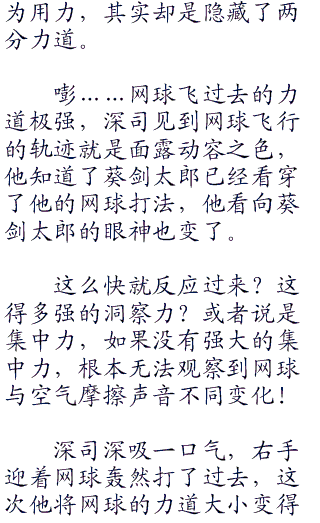 为用力，其实却是隐藏了两
分力道。
嘭……网球飞过去的力
道极强，深司见到网球飞行
的轨迹就是面露动容之色，
他知道了葵剑太郎已经看穿
了他的网球打法，他看向葵
剑太郎的眼神也变了。
这么快就反应过来？这
得多强的洞察力？或者说是
集中力，如果没有强大的集
中力，根本无法观察到网球
与空气摩擦声音不同变化！
深司深吸一口气，右手
迎着网球轰然打了过去，这
次他将网球的力道大小变得